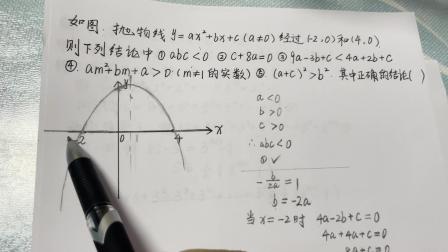 如图:抛物线y=ax²+bx+c(a≠0)经过(-2,0)和(4,0)
则下列结论中①abc<0 ②c+8a=0 ③9a-3b+c<4a+2b+c
④.am²+bm+a>0(m≠1的实数)⑤(a+c)²>b².其中正确的结论( )
y
-2
0
4
x
a<0
b>0
c>0
∴abc<0
①✓
-b/2a=1
b=-2a
当x=-2时 4a-2b+c=0
4a+4a+c=0
8a+c=0